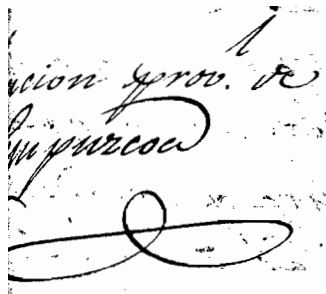 acion prov. de
Guipuzcoa